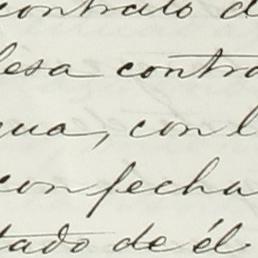 contrato d
lesa contra
gua, con l
con fecha
tado de él